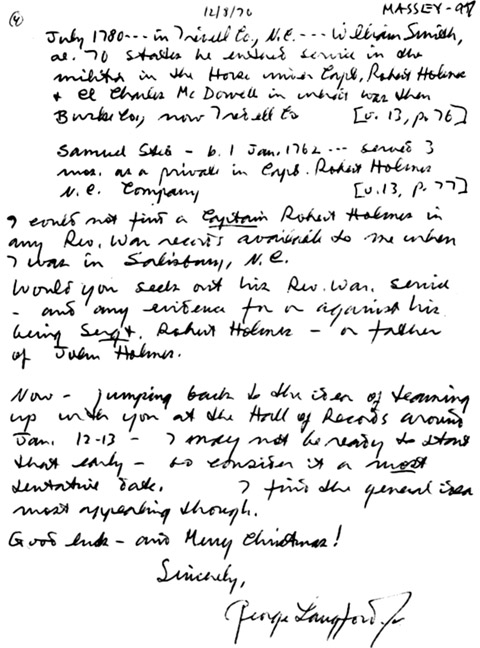 ④ 12/8/76 MASSEY-97
July 1780--- in Iredell Co, N.C. --- William Smith,
ae. 70 states he entered service in the
militia in the Horse under Capt. Robert Holmes
+ Cl Charles McDowell in what was then
Burke Co, now Iredell Co [v. 13, p. 76]
Samuel - b. 1 Jan. 1762 --- served 3
mos. as a private in Capt. Robert Holmes
N.C. Company [v.13, p. 77]
I could not find a Captain Robert Holmes in
any Rev. War records available to me when
I was in Salisbury, N.C.
Would you seek out his Rev. War. service
- and any evidence for or against his
being Serg't. Robert Holmes - or father
of John Holmes.
Now - jumping back to the idea of teaming
up with you at the Hall of Records around
Jan. 12-13 - I may not be ready to start
that early - so consider it a most
tentative date. I find the general idea
most appealing though.
Good luck - and Merry Christmas!
Sincerely,
George Langford, Jr